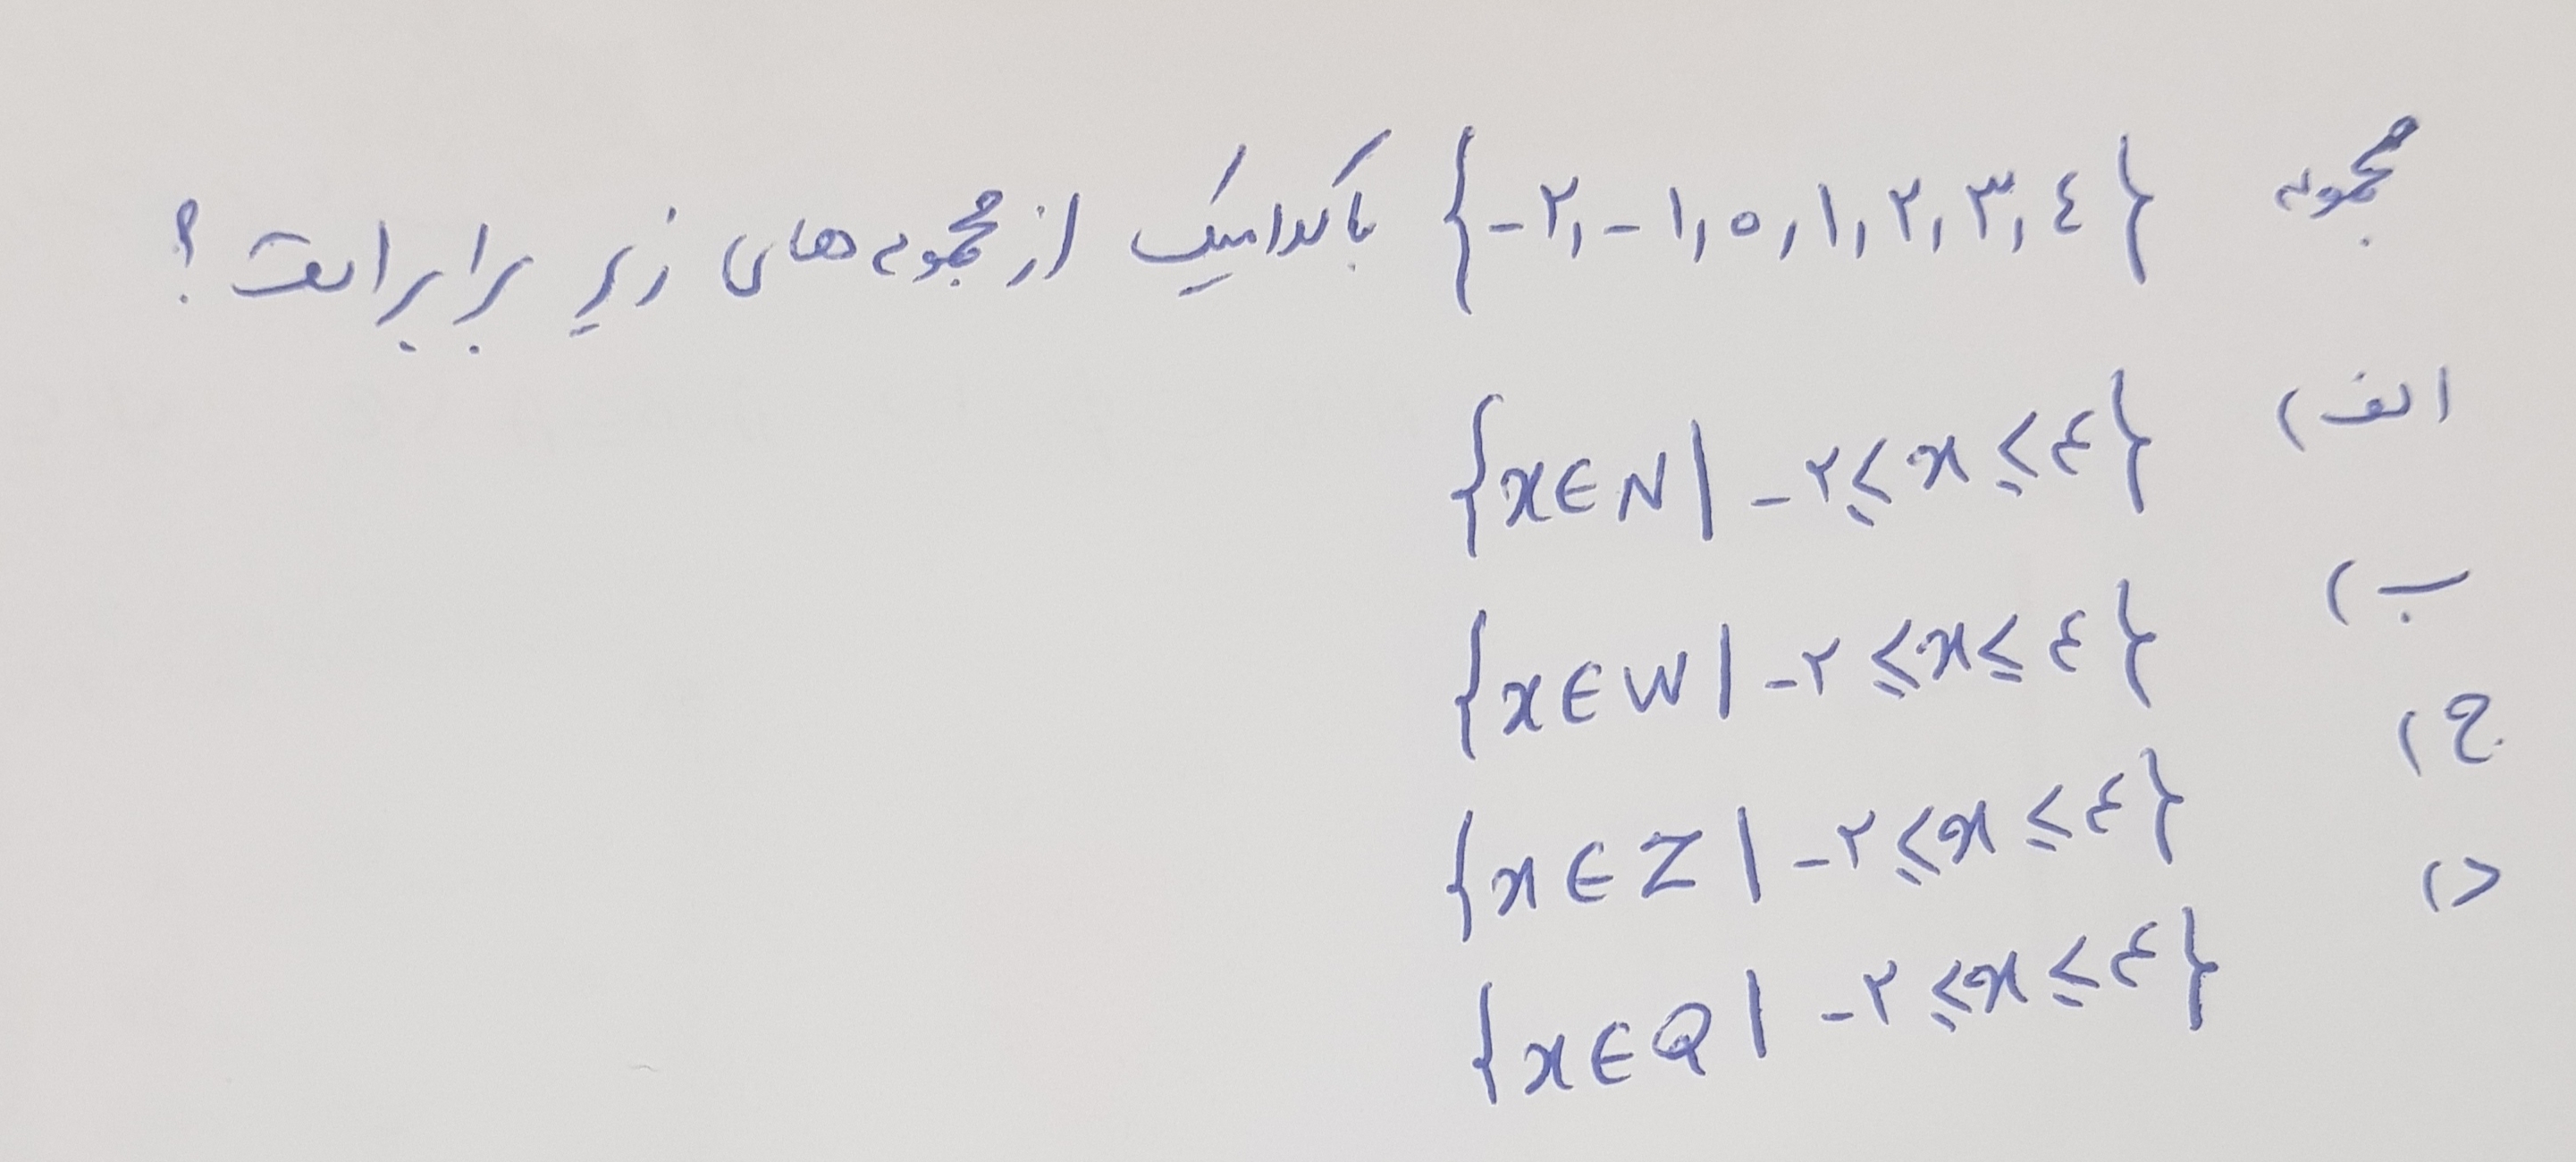 مجموعه {-۲, -۱, ۰, ۱, ۲, ۳, ٤} با کدامیک از مجموعه های زیر برابر است ؟
الف) {x∈N | -۲ ≤ x ≤ ۴}
ب) {x∈W | -۲ ≤ x ≤ ۴}
ج) {x∈Z | -۲ ≤ x ≤ ۴}
د) {x∈Q | -۲ ≤ x ≤ ۴}